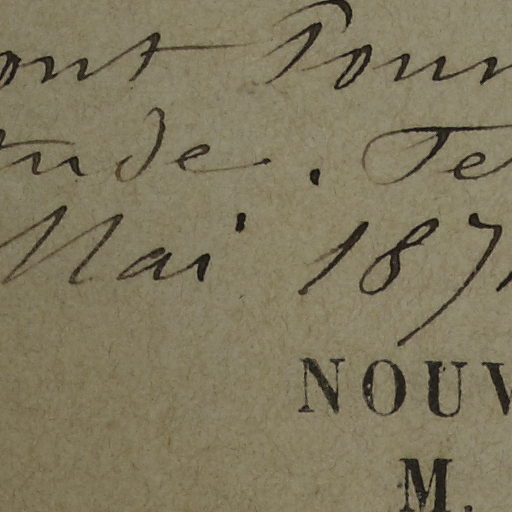 ont Pour
tude. Te
Mai 187
NOUV
M.